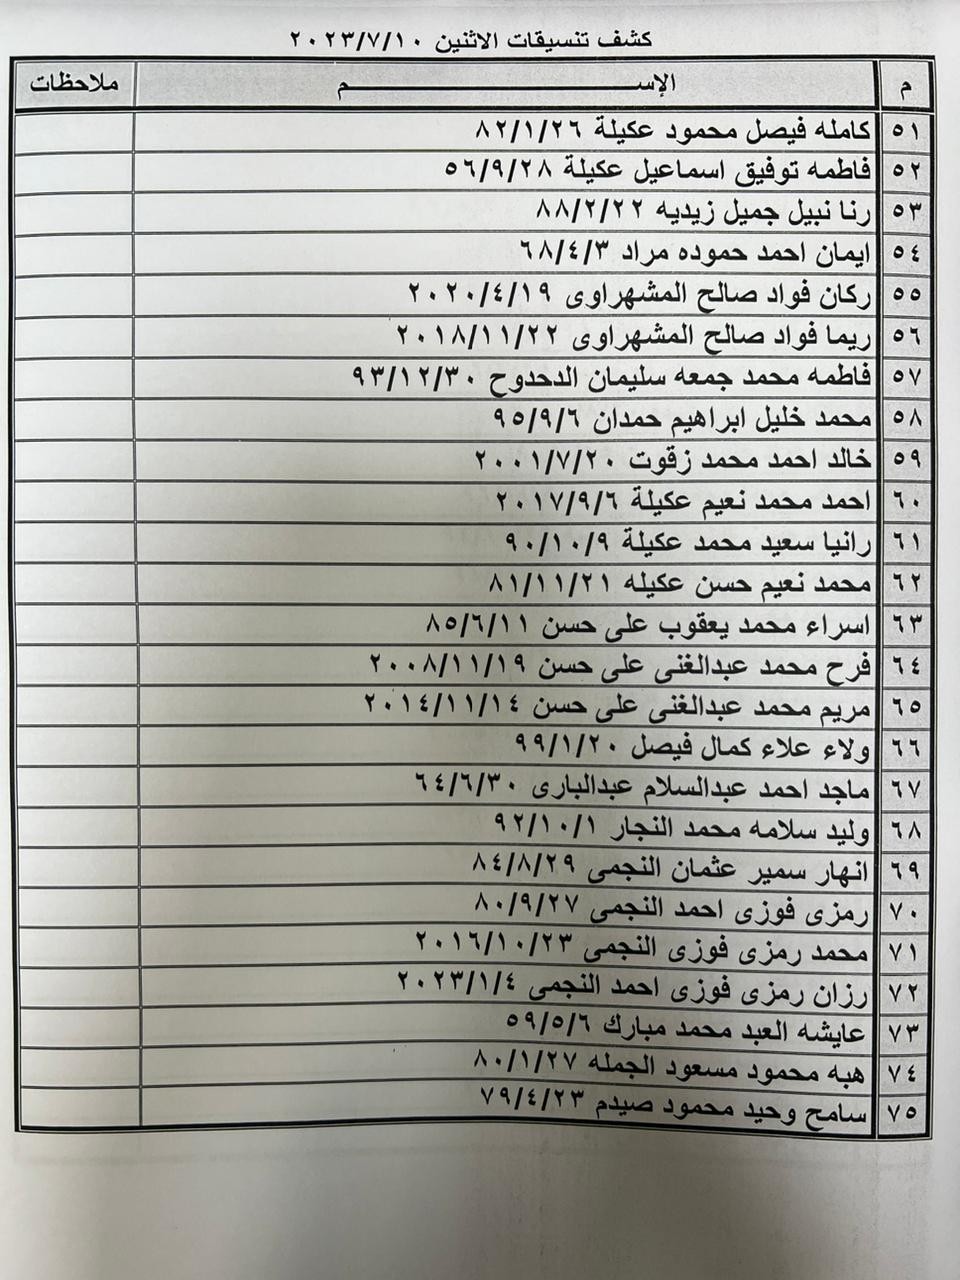 كشف تنسيقات الاثنين ٢٠٢٣/٧/١٠
م الإســــــــم ملاحظات
٥١ كامله فيصل محمود عكيلة ٨٢/١/٢٦
٥٢ فاطمه توفيق اسماعيل عكيلة ٥٦/٩/٢٨
٥٣ رنا نبيل جميل زيديه ٨٨/٢/٢٢
٥٤ ايمان احمد حموده مراد ٦٨/٤/٣
٥٥ ركان فواد صالح المشهراوى ٢٠٢٠/٤/١٩
٥٦ ريما فواد صالح المشهراوى ٢٠١٨/١١/٢٢
٥٧ فاطمه محمد جمعه سليمان الدحدوح ٩٣/١٢/٣٠
٥٨ محمد خليل ابراهيم حمدان ٩٥/٩/٦
٥٩ خالد احمد محمد زقوت ٢٠٠١/٧/٢٠
٦٠ احمد محمد نعيم عكيلة ٢٠١٧/٩/٦
٦١ رانيا سعيد محمد عكيلة ٩٠/١٠/٩
٦٢ محمد نعيم حسن عكيله ٨١/١١/٢١
٦٣ اسراء محمد يعقوب على حسن ٨٥/٦/١١
٦٤ فرح محمد عبدالغنى على حسن ٢٠٠٨/١١/١٩
٦٥ مريم محمد عبدالغنى على حسن ٢٠١٤/١١/١٤
٦٦ ولاء علاء كمال فيصل ٩٩/١/٢٠
٦٧ ماجد احمد عبدالسلام عبدالبارى ٦٤/٦/٣٠
٦٨ وليد سلامه محمد النجار ٩٢/١٠/١
٦٩ انهار سمير عثمان النجمى ٨٤/٨/٢٩
٧٠ رمزى فوزى احمد النجمى ٨٠/٩/٢٧
٧١ محمد رمزى فوزى النجمى ٢٠١٦/١٠/٢٣
٧٢ رزان رمزى فوزى احمد النجمى ٢٠٢٣/١/٤
٧٣ عايشه العبد محمد مبارك ٥٩/٥/٦
٧٤ هبه محمود مسعود الجمله ٨٠/١/٢٧
٧٥ سامح وحيد محمود صيدم ٧٩/٤/٢٣